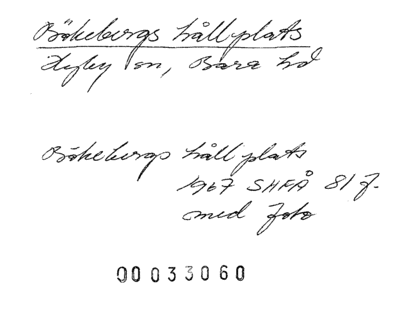 Bökebergs hållplats
Hyby sn, Bara hd
Bökebergs hållplats
1967 SHFÅ 81 f.
med foto
00033060